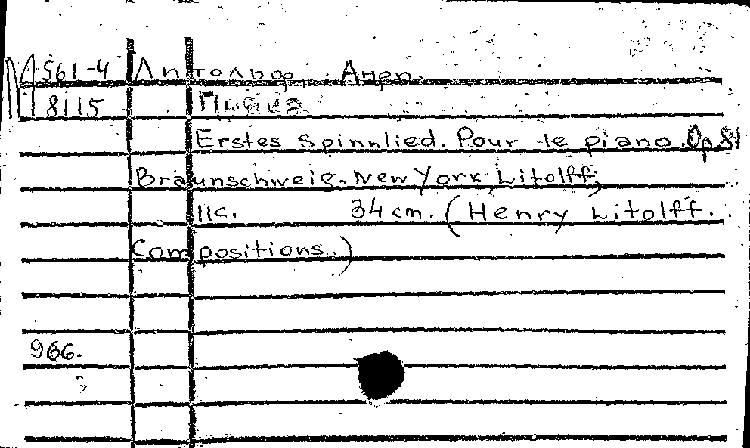 М 561-4 Литольф, Анри.
8115 Пьеса
Erstes Spinnlied. Pour le piano. Op 81
Braunschweig-New York, Litolff,
11c. 34 cm. (Henry Litolff.
Compositions.)
966.